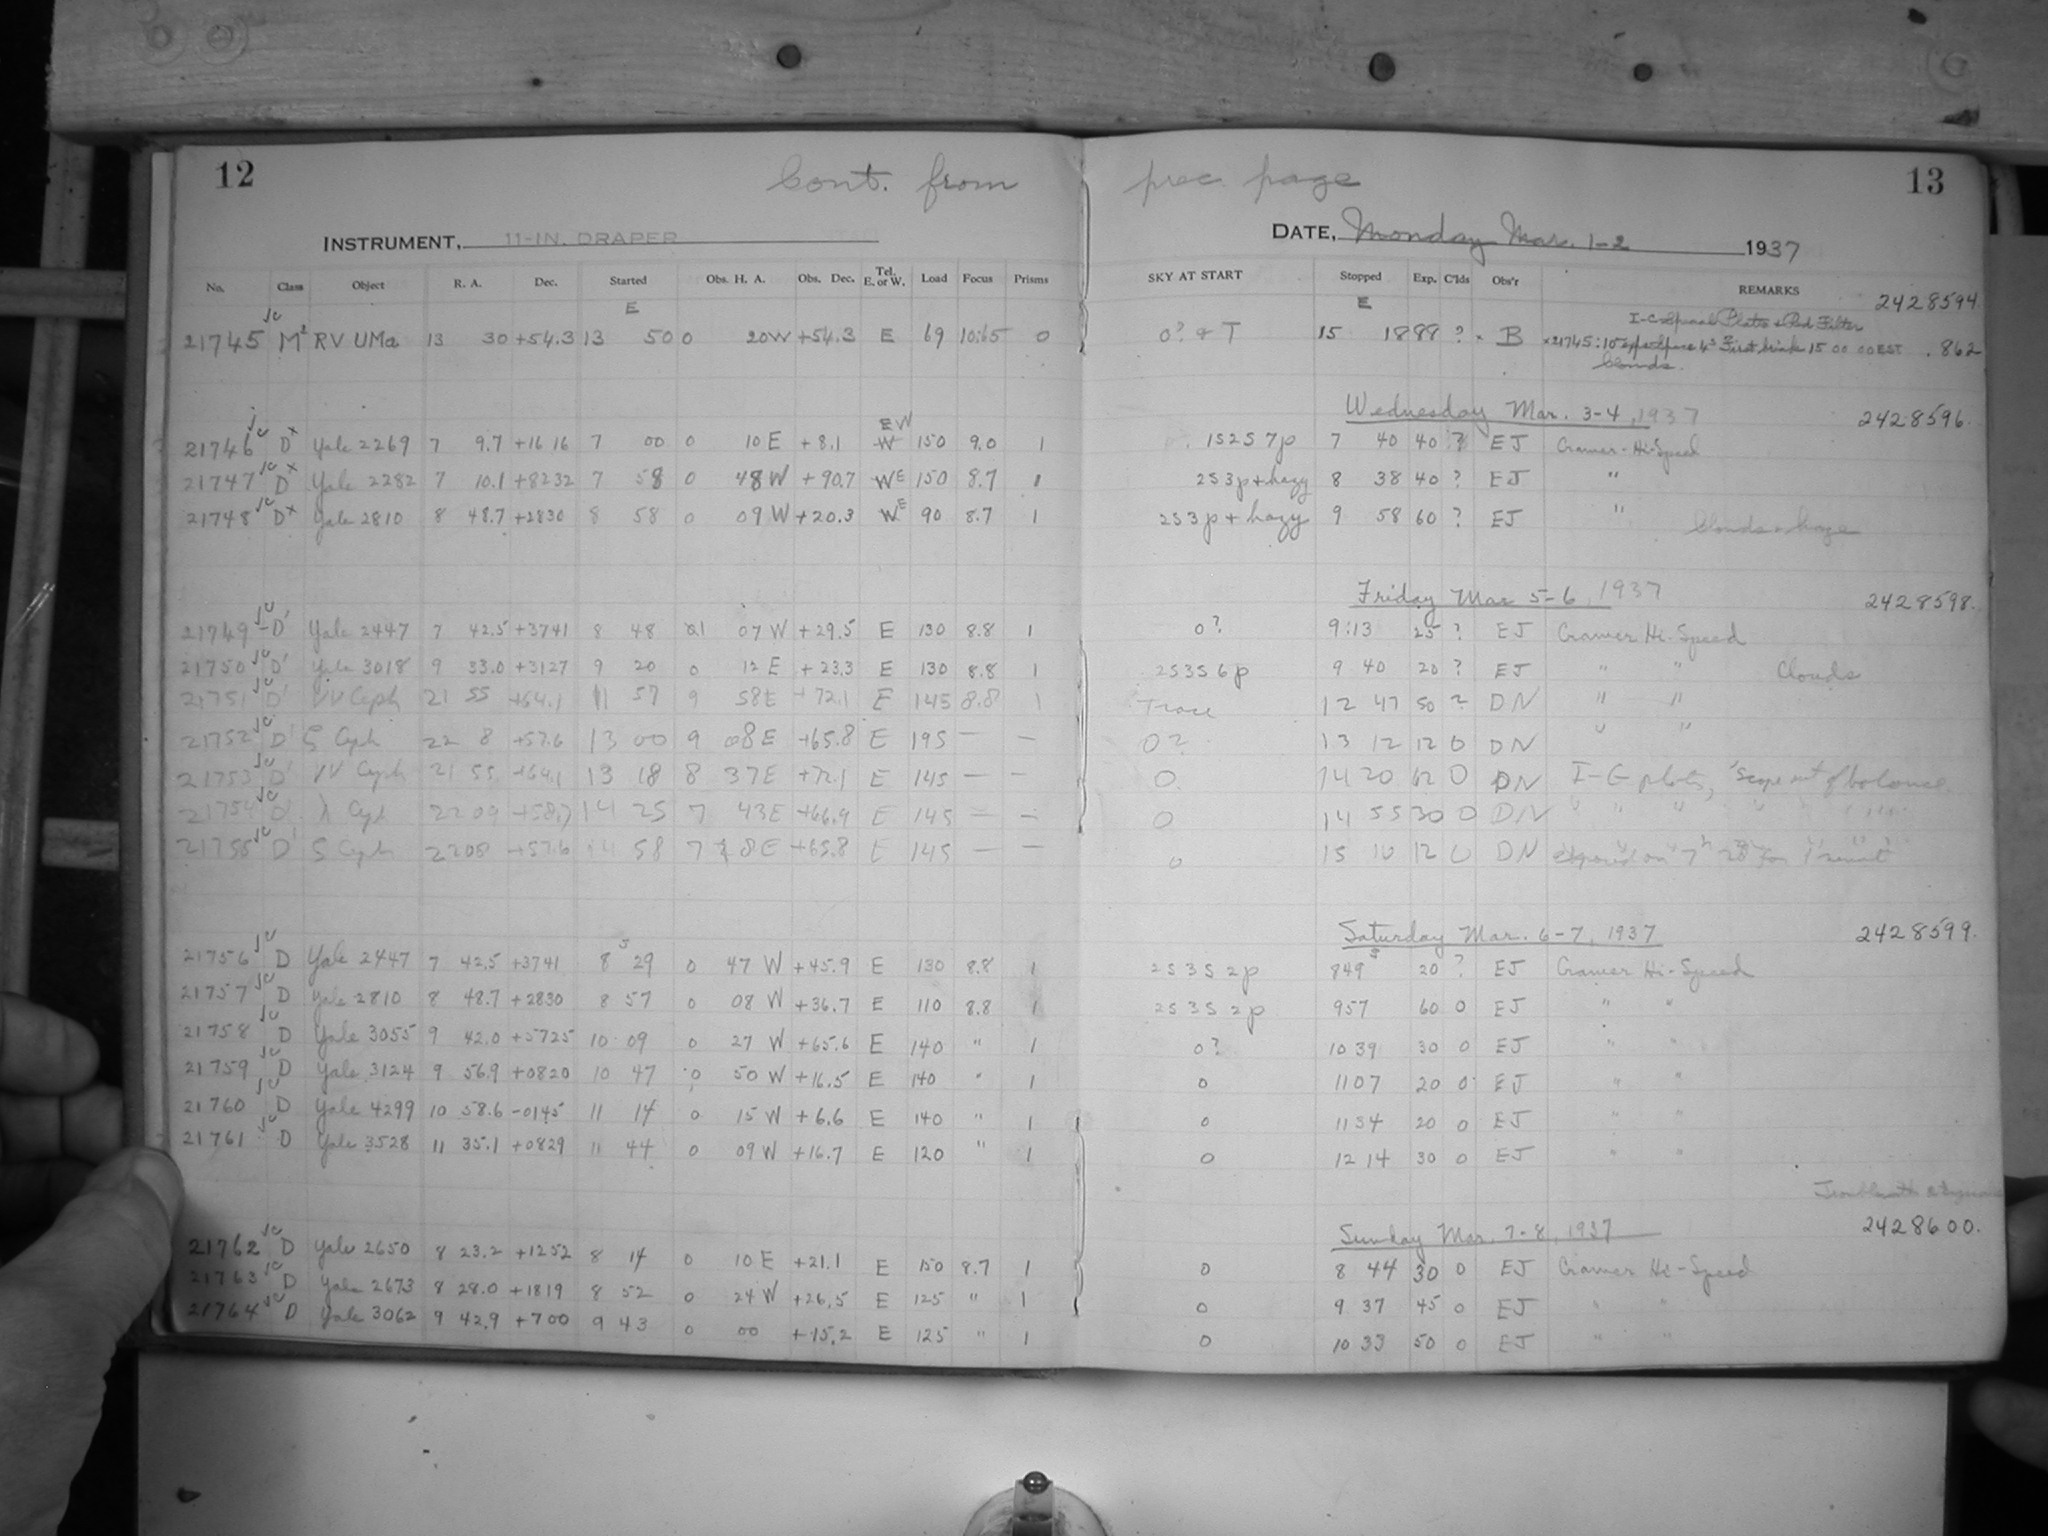 12 Cont. from prec. page 13
INSTRUMENT, 11-IN. DRAPER DATE, Monday Mar. 1-2 1937
No. Class Object R. A. Dec. Started Obs. H. A. Obs. Dec. Tel. E. or W. Load Focus Prisms SKY AT START Stopped Exp. C'lds Obs'r REMARKS 2428594
E E
21745 M² RV UMa 13 30 +54.3 13 50 0 20W +54.3 E 69 10.65 0 0? & T 15 18 88 ? × B .862
Clouds.
Wednesday Mar. 3-4, 1937 2428596.
21746 D× Yale 2269 7 9.7 +16 16 7 00 0 10 E +8.1 W EW 150 9.0 1 1S2S7p 7 40 40 ? EJ Cramer-Hi-Speed
21747 D× Yale 2282 7 10.1 +8232 7 58 0 48 W +90.7 W E 150 8.7 1 2S3p+hazy 8 38 40 ? EJ "
21748 D× Yale 2810 8 48.7 +2830 8 58 0 09 W +20.3 W E 90 8.7 1 2S3p + hazy 9 58 60 ? EJ " Clouds & haze
Friday Mar 5-6, 1937 2428598.
21749 D' Yale 2447 7 42.5 +3741 8 48 1 07 W +29.5 E 130 8.8 1 0? 9:13 25 ? EJ Cramer Hi-Speed
21750 D' Yale 3018 9 33.0 +3127 9 20 0 12 E +23.3 E 130 8.8 1 2S3S6p 9 40 20 ? EJ " " Clouds
21751 D' VV Ceph 21 55 +64.1 11 57 9 58E +72.1 E 145 8.8 1 Trace 12 47 50 ? DN " "
21752 D' ζ Ceph 22 8 +57.6 13 00 9 08E +65.8 E 195 — — 0? 13 12 12 0 DN " "
21753 D' VV Ceph 21 55 +64.1 13 18 8 37E +72.1 E 145 — — 0. 14 20 62 0 DN I-G plates, 'scope out of balance
21754 D' λ Cep 22 09 +58.7) 14 25 7 43E +66.9 E 145 — — 0 14 55 30 0 DN " " "
21755 D' ζ Ceph 22 08 +57.6 14 58 7 8E +65.8 E 145 — — 0 15 10 12 0 DN
Saturday Mar. 6-7, 1937 2428599.
21756 D Yale 2447 7 42.5 +3741 8 29 0 47 W +45.9 E 130 8.8 1 2S3S2p 849 20 ? EJ Cramer Hi-Speed
21757 D Yale 2810 8 48.7 +2830 8 57 0 08 W +36.7 E 110 8.8 1 2S3S2p 957 60 0 EJ " "
21758 D Yale 3055 9 42.0 +5725 10 09 0 27 W +65.6 E 140 " 1 0? 10 39 30 0 EJ " "
21759 D Yale 3124 9 56.9 +0820 10 47 0 50 W +16.5 E 140 " 1 0 1107 20 0 EJ " "
21760 D Yale 4299 10 58.6 -0145 11 14 0 15 W +6.6 E 140 " 1 0 1134 20 0 EJ " "
21761 D Yale 3528 11 35.1 +0829 11 44 0 09 W +16.7 E 120 " 1 0 12 14 30 0 EJ " "
Sunday Mar. 7-8, 1937 2428600.
21762 D Yale 2650 8 23.2 +1252 8 14 0 10 E +21.1 E 150 8.7 1 0 8 44 30 0 EJ Cramer Hi-Speed
21763 D Yale 2673 8 28.0 +1819 8 52 0 24 W +26.5 E 125 " 1 0 9 37 45 0 EJ " "
21764 D Yale 3062 9 42.9 +700 9 43 0 00 +15.2 E 125 " 1 0 10 33 50 0 EJ " "